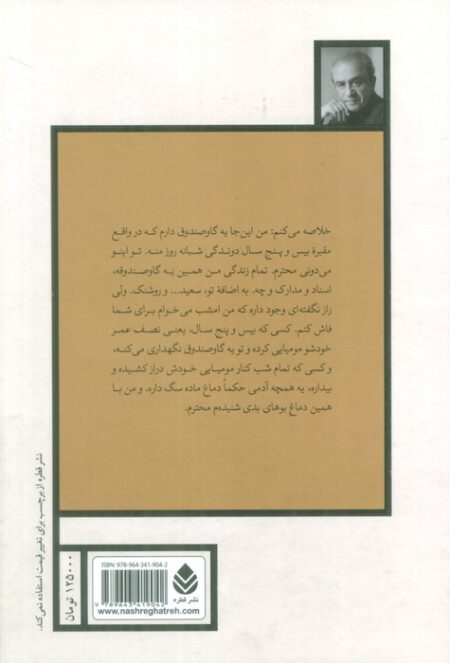 خلاصه می‌کنم: من این‌جا یه گاوصندوق دارم که در واقع
مقبرهٔ بیس و پنج سال دوندگی شبانه روز منه. تو اینو
می‌دونی محترم. تمام زندگی من همین یه گاوصندوقه،
اسناد و مدارک و چه. به اضافهٔ تو، سعید... و روشنک. ولی
راز نگفته‌ای وجود داره که من امشب می‌خوام برای شما
فاش کنم. کسی که بیس و پنج سال، یعنی نصف عمر
خودشو مومیایی کرده و تو یه گاوصندوق نگهداری می‌کنه،
و کسی که تمام شب کنار مومیایی خودش دراز کشیده و
بیداره، یه همچه آدمی حکماً دماغ ماده سگ داره. و من با
همین دماغ بوهای بدی شنیده‌م محترم.
نشر قطره از برچسب برای تغییر قیمت استفاده نمی‌کند.
۱۲۵۰۰۰ تومان
ISBN: 978-964-341-904-2
9 789643 419042
نشر قطره
www.nashreghatreh.com